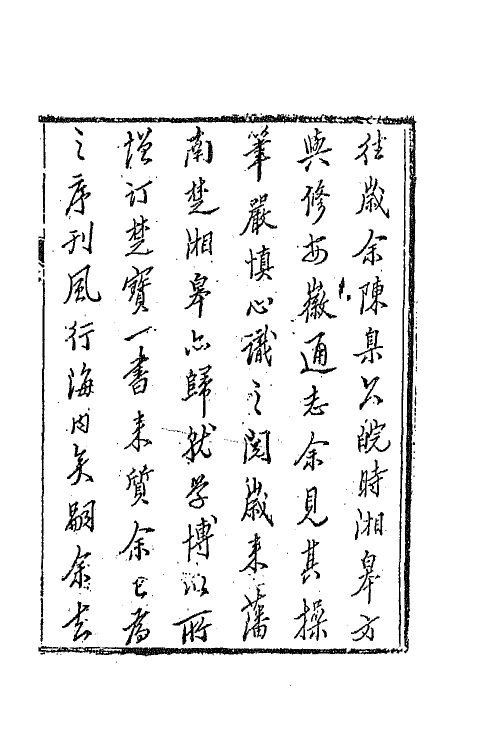 往歲余陳臬公皖時湘皋方
與修安徽通志余見其操
筆嚴慎心識之閱歲來藩
南楚湘皋亦歸就學博以所
增订楚寶一書来質余已為
之序刊風行海内矣嗣余去